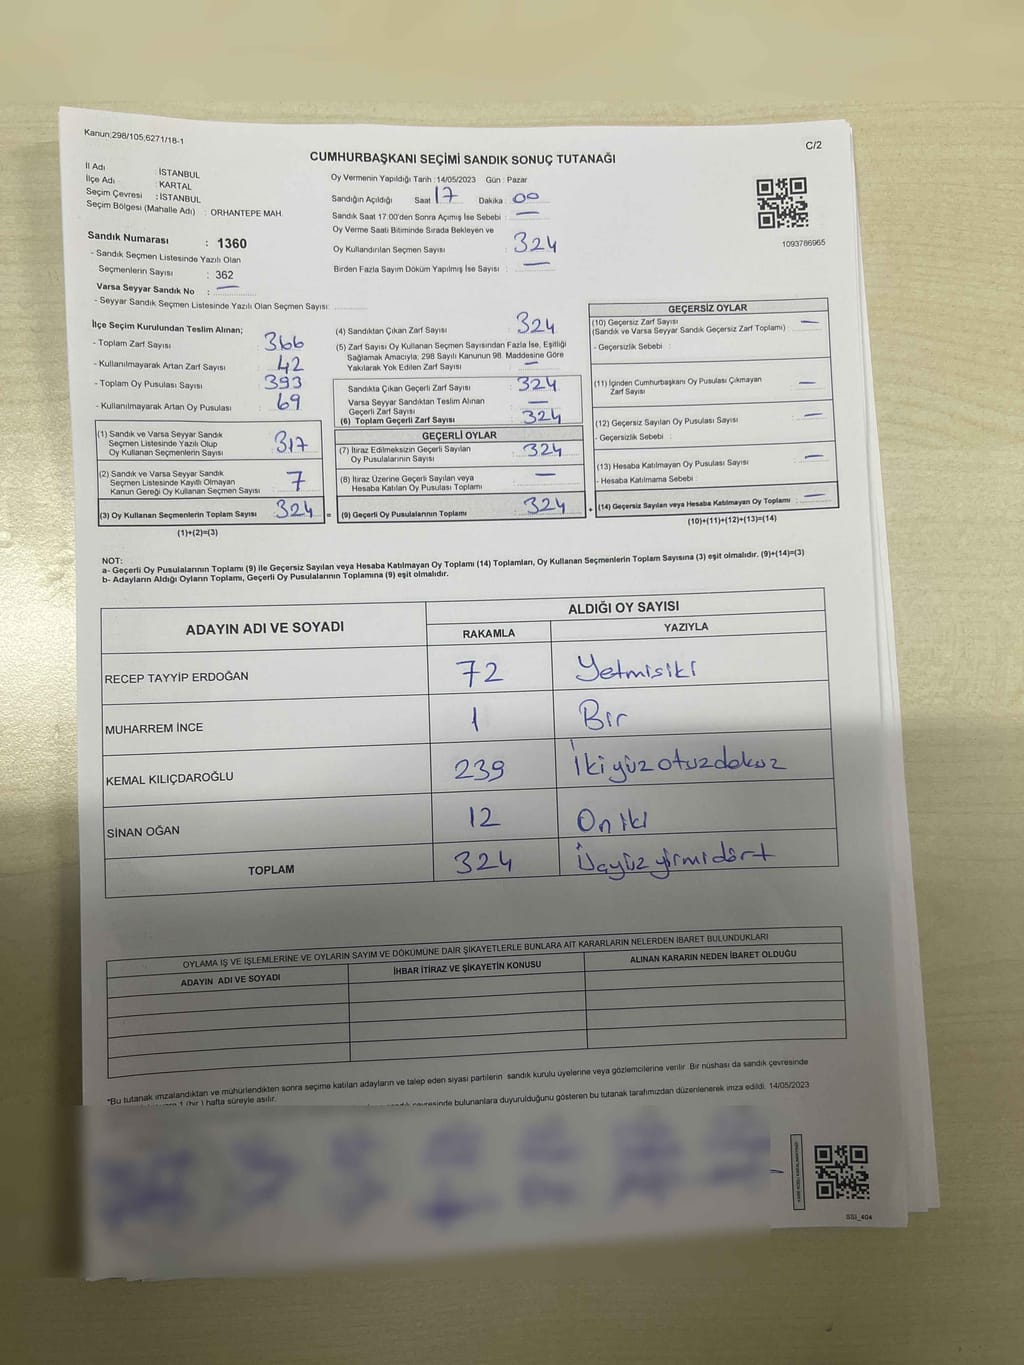 Kanun;298/105;6271/18-1
C/2
CUMHURBAŞKANI SEÇİMİ SANDIK SONUÇ TUTANAĞI
İl Adı : İSTANBUL
İlçe Adı : KARTAL
Seçim Çevresi : İSTANBUL
Seçim Bölgesi (Mahalle Adı) : ORHANTEPE MAH.
Sandık Numarası : 1360
- Sandık Seçmen Listesinde Yazılı Olan
Seçmenlerin Sayısı : 362
Varsa Seyyar Sandık No : —
- Seyyar Sandık Seçmen Listesinde Yazılı Olan Seçmen Sayısı:
Oy Vermenin Yapıldığı Tarih :14/05/2023 Gün : Pazar
Sandığın Açıldığı Saat 17 Dakika : 00
Sandık Saat 17:00'den Sonra Açımış İse Sebebi : —
Oy Verme Saati Bitiminde Sırada Bekleyen ve
Oy Kullandırılan Seçmen Sayısı : 324
Birden Fazla Sayım Döküm Yapılmış İse Sayısı : —
1093786965
İlçe Seçim Kurulundan Teslim Alınan;
- Toplam Zarf Sayısı : 366
- Kullanılmayarak Artan Zarf Sayısı : 42
- Toplam Oy Pusulası Sayısı : 393
- Kullanılmayarak Artan Oy Pusulası : 69
(1) Sandık ve Varsa Seyyar Sandık
Seçmen Listesinde Yazılı Olup
Oy Kullanan Seçmenlerin Sayısı : 317
(2) Sandık ve Varsa Seyyar Sandık
Seçmen Listesinde Kayıtlı Olmayan
Kanun Gereği Oy Kullanan Seçmen Sayısı : 7
(3) Oy Kullanan Seçmenlerin Toplam Sayısı : 324
(1)+(2)=(3)
(4) Sandıktan Çıkan Zarf Sayısı : 324
(5) Zarf Sayısı Oy Kullanan Seçmen Sayısından Fazla İse, Eşitliği
Sağlamak Amacıyla, 298 Sayılı Kanunun 98. Maddesine Göre
Yakılarak Yok Edilen Zarf Sayısı : —
Sandıkta Çıkan Geçerli Zarf Sayısı : 324
Varsa Seyyar Sandıktan Teslim Alınan
Geçerli Zarf Sayısı : —
(6) Toplam Geçerli Zarf Sayısı : 324
GEÇERLİ OYLAR
(7) İtiraz Edilmeksizin Geçerli Sayılan
Oy Pusulalarının Sayısı : 324
(8) İtiraz Üzerine Geçerli Sayılan veya
Hesaba Katılan Oy Pusulası Toplamı : —
= (9) Geçerli Oy Pusulalarının Toplamı : 324
GEÇERSİZ OYLAR
(10) Geçersiz Zarf Sayısı : —
(Sandık ve Varsa Seyyar Sandık Geçersiz Zarf Toplamı)
- Geçersizlik Sebebi :
(11) İçinden Cumhurbaşkanı Oy Pusulası Çıkmayan
Zarf Sayısı : —
(12) Geçersiz Sayılan Oy Pusulası Sayısı : —
- Geçersizlik Sebebi :
(13) Hesaba Katılmayan Oy Pusulası Sayısı : —
- Hesaba Katılmama Sebebi :
+ (14) Geçersiz Sayılan veya Hesaba Katılmayan Oy Toplamı : —
(10)+(11)+(12)+(13)=(14)
NOT:
a- Geçerli Oy Pusulalarının Toplamı (9) ile Geçersiz Sayılan veya Hesaba Katılmayan Oy Toplamı (14) Toplamları, Oy Kullanan Seçmenlerin Toplam Sayısına (3) eşit olmalıdır. (9)+(14)=(3)
b- Adayların Aldığı Oyların Toplamı, Geçerli Oy Pusulalarının Toplamına (9) eşit olmalıdır.
ADAYIN ADI VE SOYADI
ALDIĞI OY SAYISI
RAKAMLA YAZIYLA
RECEP TAYYİP ERDOĞAN 72 Yetmisiki
MUHARREM İNCE 1 Bir
KEMAL KILIÇDAROĞLU 239 İkiyüzotuzdokuz
SİNAN OĞAN 12 Oniki
TOPLAM 324 Üçyüzyirmidört
OYLAMA İŞ VE İŞLEMLERİNE VE OYLARIN SAYIM VE DÖKÜMÜNE DAİR ŞİKAYETLERLE BUNLARA AİT KARARLARIN NELERDEN İBARET BULUNDUKLARI
ADAYIN ADI VE SOYADI İHBAR İTİRAZ VE ŞİKAYETİN KONUSU ALINAN KARARIN NEDEN İBARET OLDUĞU
*Bu tutanak imzalandıktan ve mühürlendikten sonra seçime katılan adayların ve talep eden siyasi partilerin sandık kurulu üyelerine veya gözlemcilerine verilir. Bir nüshası da sandık çevresinde
1 (bir ) hafta süreyle asılır.
bulunanlara duyurulduğunu gösteren bu tutanak tarafımızdan düzenlenerek imza edildi. 14/05/2023
SSI_404